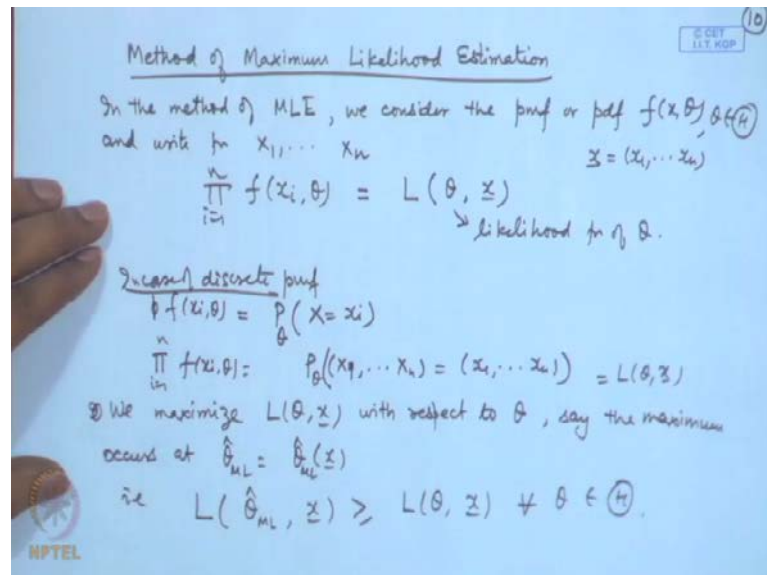 10
C CET
I.I.T. KGP
Method of Maximum Likelihood Estimation
In the method of MLE, we consider the pmf or pdf f(x,θ), θ∈Ⓗ
and write fn X₁, ... Xₙ
x̲ = (x₁, ... xₙ)
n
∏ f(xᵢ,θ) = L(θ, x̲)
i=1
↘ likelihood fn of θ.
In case of discrete pmf
f(xᵢ,θ) = P_θ(X = xᵢ)
n
∏ f(xᵢ,θ) = P_θ((X₁, ... Xₙ) = (x₁, ... xₙ)) = L(θ, x̲)
i=1
We maximize L(θ, x̲) with respect to θ, say the maximum
occurs at θ̂_ML = θ̂_ML(x̲)
ie L(θ̂_ML, x̲) ≥ L(θ, x̲) ∀ θ ∈ Ⓗ.
NPTEL